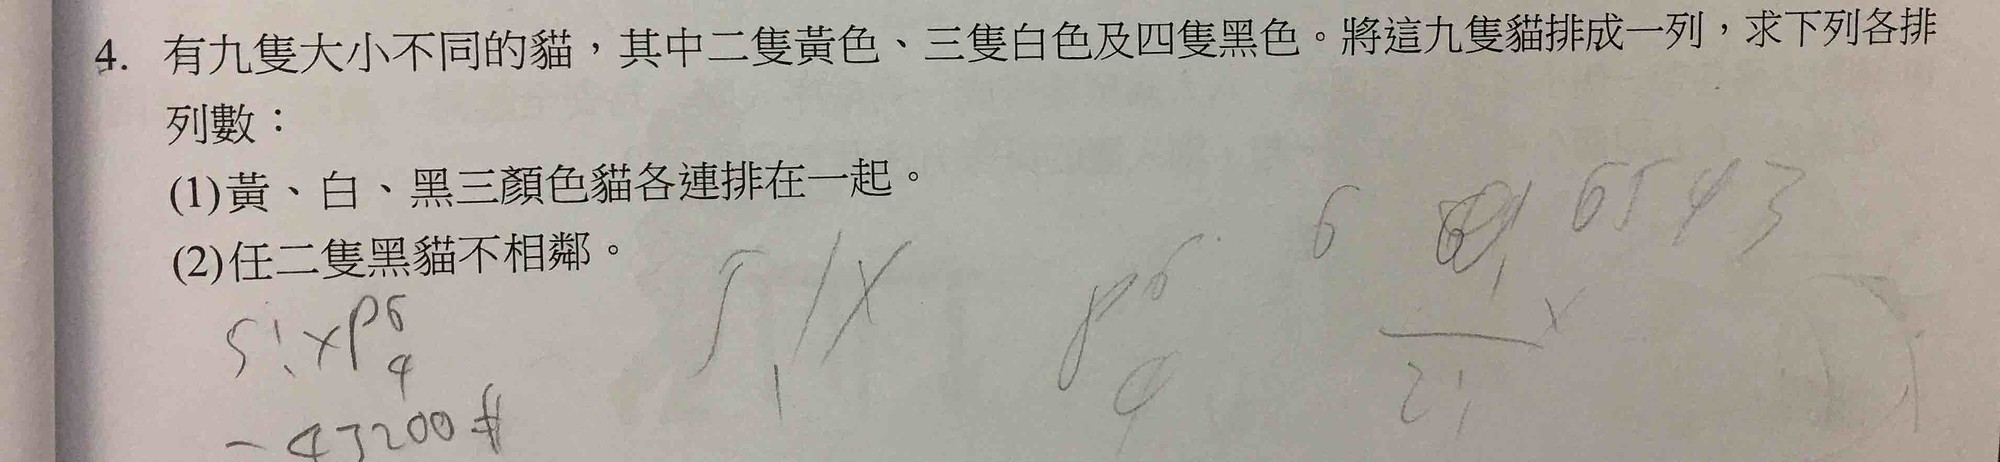 4. 有九隻大小不同的貓，其中二隻黃色、三隻白色及四隻黑色。將這九隻貓排成一列，求下列各排
列數：
(1)黃、白、黑三顏色貓各連排在一起。
(2)任二隻黑貓不相鄰。
5!×P⁶₄
=43200#
5!×
P⁶₄
6
6543
2!